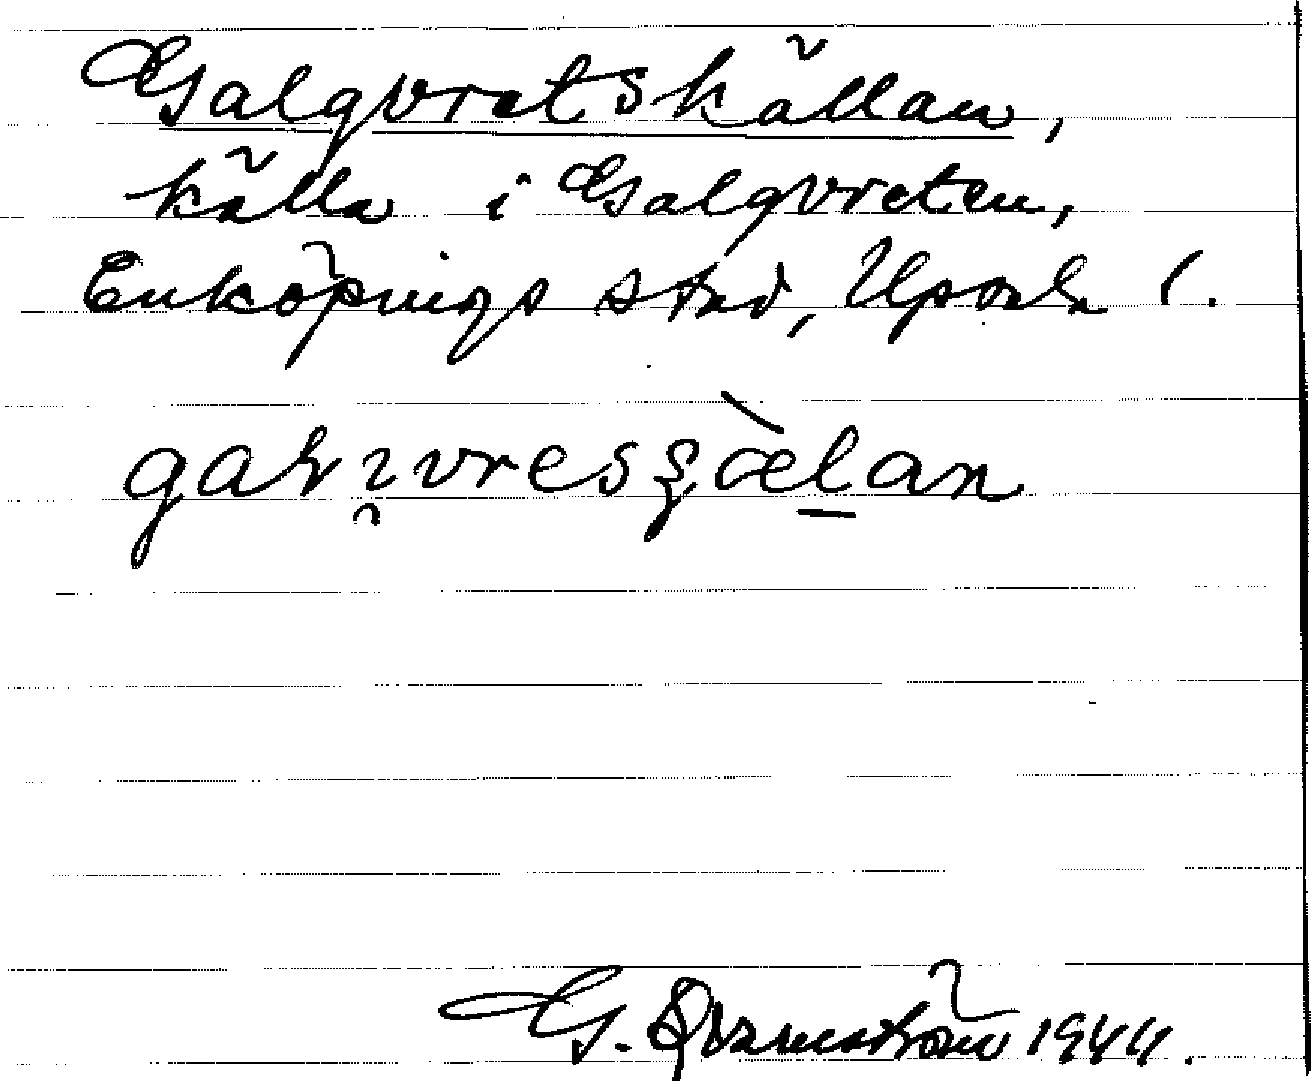 Galgvretskällan,
källa i Galgvreten,
Enköpings stad, Upsala l.
G. Qvarnström 1944.